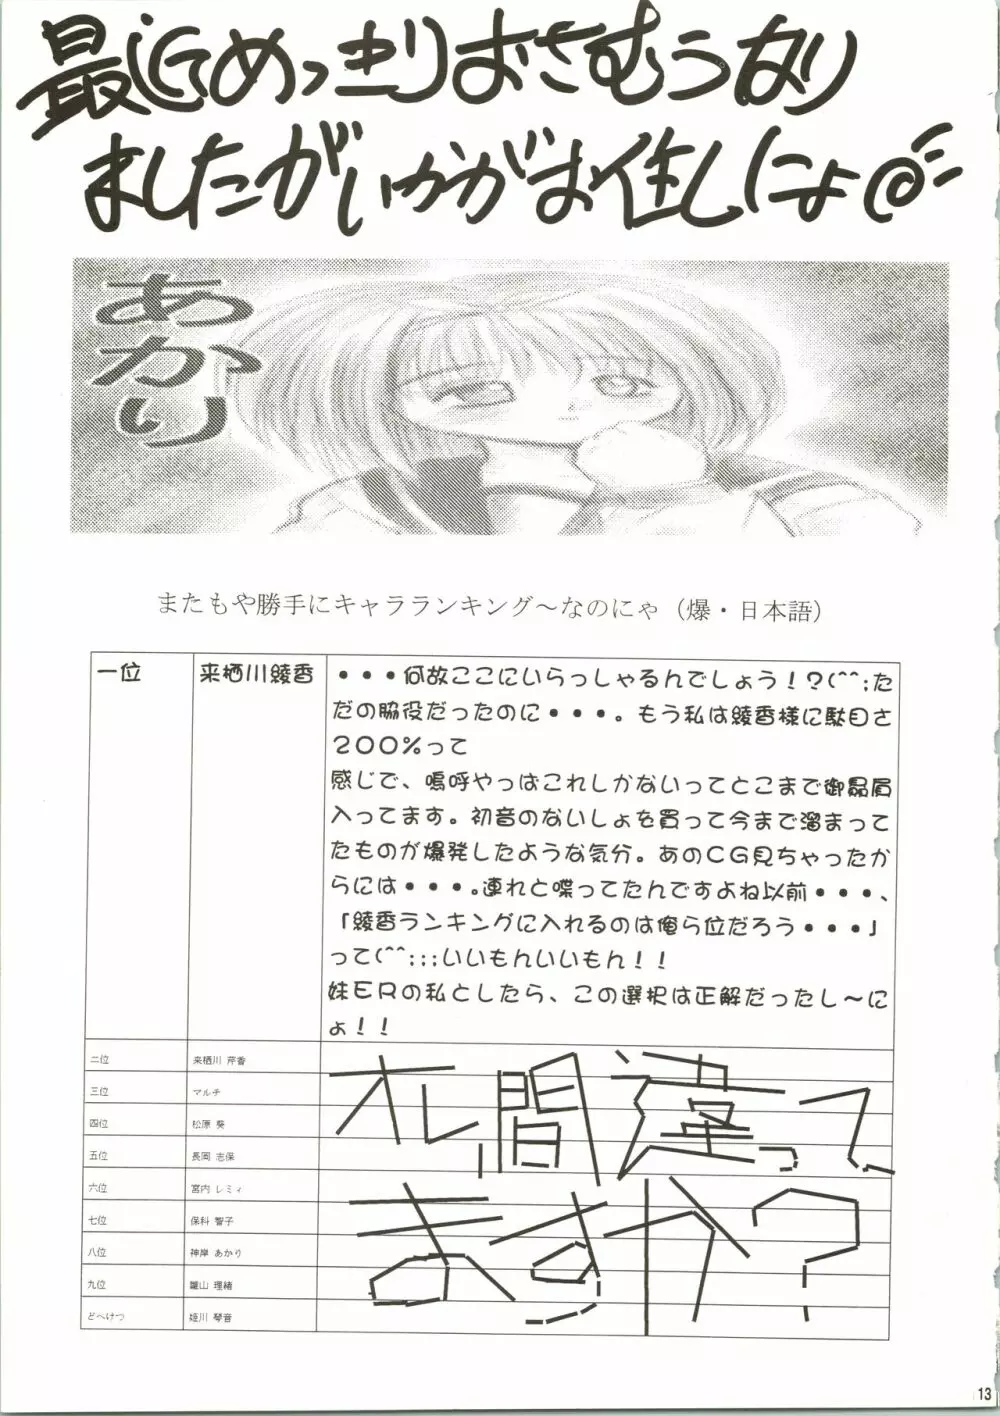 最近めっきりおさむうなり
ましたがいかがお住しにょ@
あかり
またもや勝手にキャラランキング～なのにゃ（爆・日本語）
一位 来栖川綾香 ・・・何故ここにいらっしゃるんでしょう！？(^^;た
だの脇役だったのに・・・。もう私は綾香様に駄目さ
２００％って
感じで、嗚呼やっぱこれしかないってとこまで御贔屓
入ってます。初音のないしょを買って今まで溜まって
たものが爆発したような気分。あのＣＧ見ちゃったか
らには・・・。連れと喋ってたんですよね以前・・・、
「綾香ランキングに入れるのは俺ら位だろう・・・」
って(^^;;;いいもんいいもん！！
妹ＥＲの私としたら、この選択は正解だったし～に
ょ！！
二位 来栖川 芹香
三位 マルチ
四位 松原 葵
五位 長岡 志保
六位 宮内 レミィ
七位 保科 智子
八位 神岸 あかり
九位 雛山 理緒
どべけつ 姫川 琴音
オレ間違って
ますか？
13